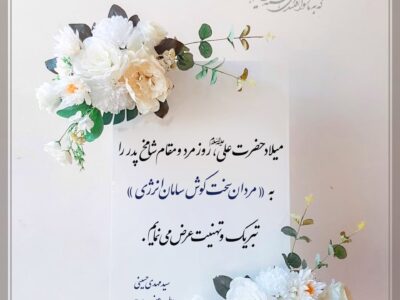 میلاد حضرت علی علیه‌السلام، روز مرد و مقام شامخ پدر را
به «مردان سخت کوش سامان انرژی»
تبریک و تهنیت عرض می نمایم.
سید مهدی حسینی